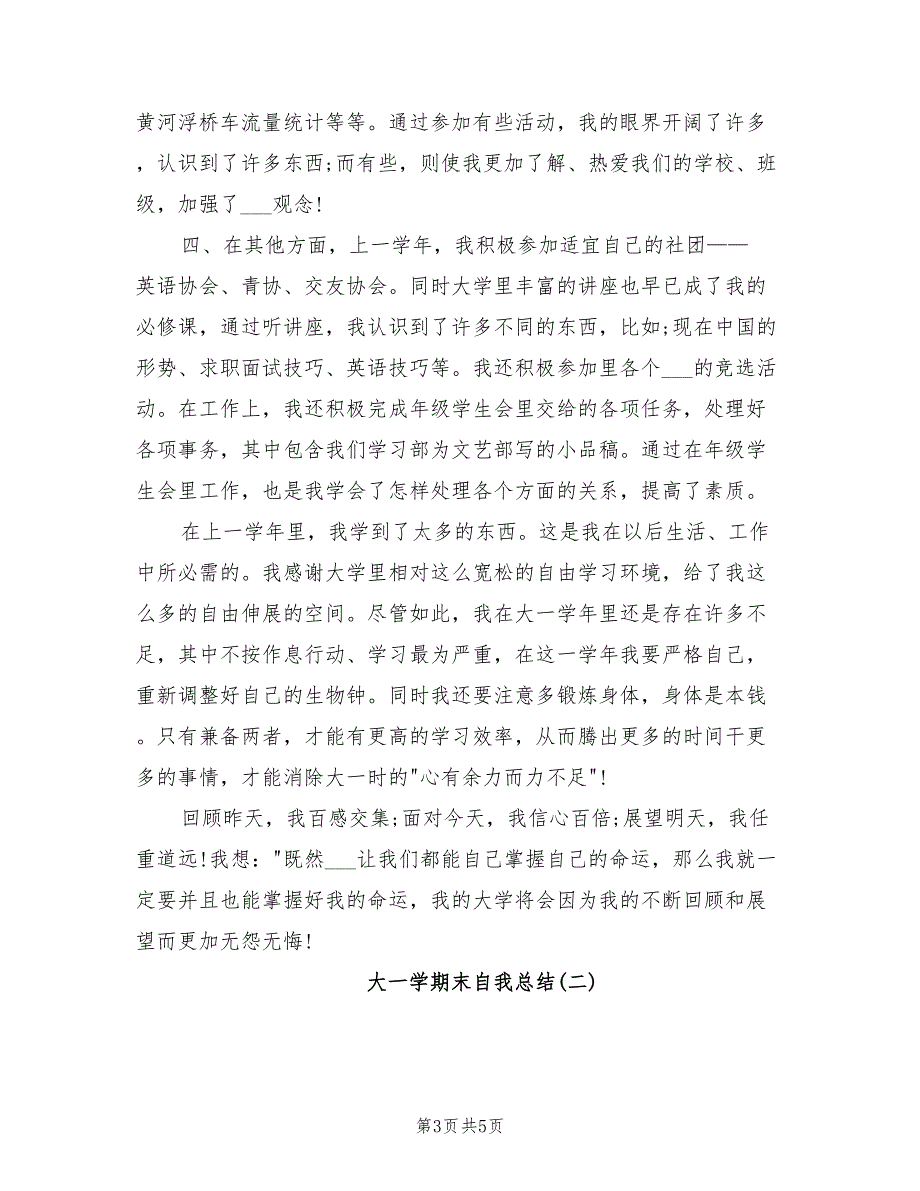 黄河浮桥车流量统计等等。通过参加有些活动，我的眼界开阔了许多
，认识到了许多东西;而有些，则使我更加了解、热爱我们的学校、班
级，加强了___观念!
四、在其他方面，上一学年，我积极参加适宜自己的社团——
英语协会、青协、交友协会。同时大学里丰富的讲座也早已成了我的
必修课，通过听讲座，我认识到了许多不同的东西，比如;现在中国的
形势、求职面试技巧、英语技巧等。我还积极参加里各个___的竞选活
动。在工作上，我还积极完成年级学生会里交给的各项任务，处理好
各项事务，其中包含我们学习部为文艺部写的小品稿。通过在年级学
生会里工作，也是我学会了怎样处理各个方面的关系，提高了素质。
在上一学年里，我学到了太多的东西。这是我在以后生活、工作
中所必需的。我感谢大学里相对这么宽松的自由学习环境，给了我这
么多的自由伸展的空间。尽管如此，我在大一学年里还是存在许多不
足，其中不按作息行动、学习最为严重，在这一学年我要严格自己，
重新调整好自己的生物钟。同时我还要注意多锻炼身体，身体是本钱
。只有兼备两者，才能有更高的学习效率，从而腾出更多的时间干更
多的事情，才能消除大一时的"心有余力而力不足"!
回顾昨天，我百感交集;面对今天，我信心百倍;展望明天，我任
重道远!我想："既然___让我们都能自己掌握自己的命运，那么我就一
定要并且也能掌握好我的命运，我的大学将会因为我的不断回顾和展
望而更加无怨无悔!
大一学期末自我总结(二)
第3页共5页